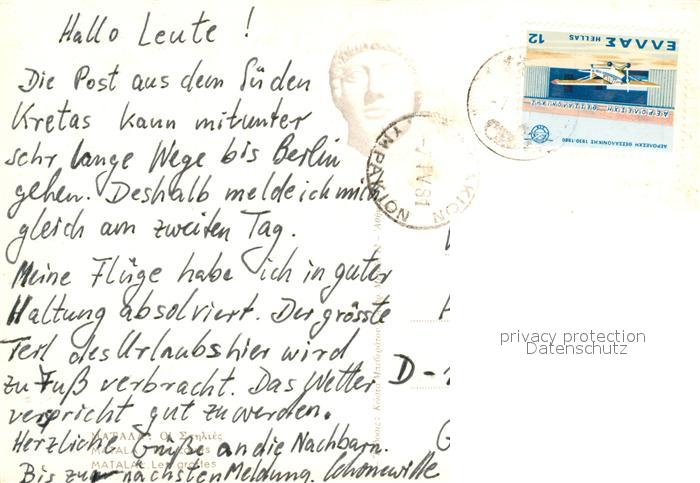 Hallo Leute !
Die Post aus dem Süden
Kretas kann mitunter
sehr lange Wege bis Berlin
gehen. Deshalb melde ich mich
gleich am zweiten Tag.
Meine Flüge habe ich in guter
Haltung absolviert. Der grösste
Teil des Urlaubs hier wird
zu Fuß verbracht. Das Wetter
verspricht gut zu werden.
Herzliche Grüße an die Nachbarn.
Bis zur nächsten Meldung.
D-
12 ΕΛΛΑΣ HELLAS
ΑΕΡΟΛΕΣΧΗ ΘΕΣΣΑΛΟΝΙΚΗΣ 1930-1980
IV 81
ΜΑΤΑΛΑ: Οἱ Σπηλιές
MATALA: Les grottes
privacy protection
Datenschutz